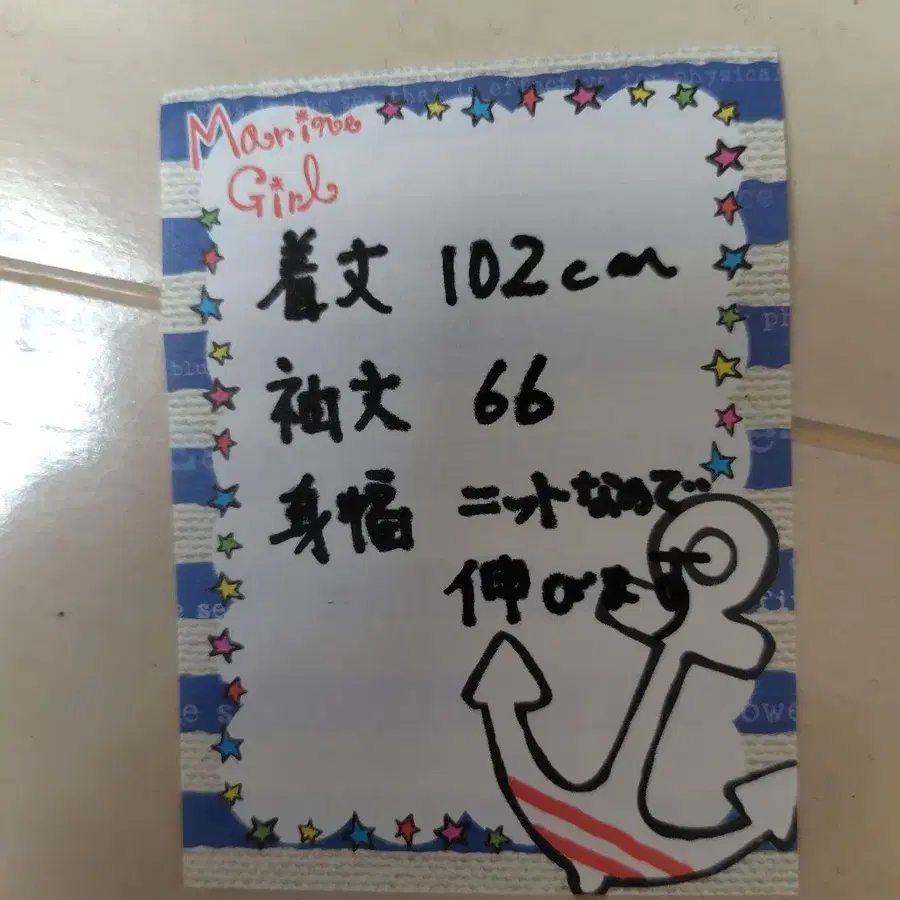 Marine
Girl
着丈 102cm
袖丈 66
身幅 ニットなので
伸びます